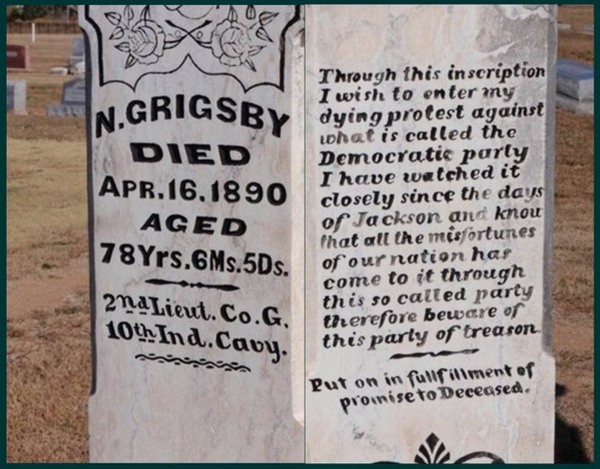 N. GRIGSBY
DIED
APR. 16, 1890
AGED
78 Yrs. 6 Ms. 5 Ds.
2nd Lieut. Co. G.
10th Ind. Cavy.
Through this inscription
I wish to enter my
dying protest against
what is called the
Democratic party
I have watched it
closely since the days
of Jackson and know
that all the misfortunes
of our nation has
come to it through
this so called party
therefore beware of
this party of treason.
Put on in fullfillment of
promise to Deceased.